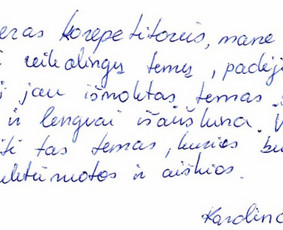 eras korepetitorius, mane
reikalingų temų, padėji
jau išmoktas temas
ir lengvai išaiškina. V
ti tas temas, kurios bu
uktūruotos ir aiškios.
Karolina